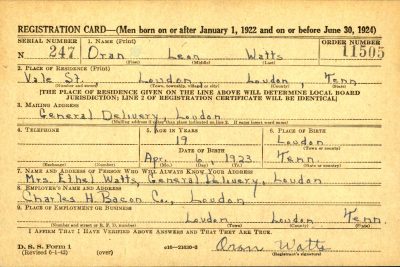 REGISTRATION CARD—(Men born on or after January 1, 1922 and on or before June 30, 1924)
SERIAL NUMBER 1. NAME (Print) ORDER NUMBER
N 247 Oran Leon Watts 11505
(First) (Middle) (Last)
2. PLACE OF RESIDENCE (Print)
Vale St. Loudon Loudon Tenn
(Number and street) (Town, township, village or city) (County) (State)
[THE PLACE OF RESIDENCE GIVEN ON THE LINE ABOVE WILL DETERMINE LOCAL BOARD
JURISDICTION; LINE 2 OF REGISTRATION CERTIFICATE WILL BE IDENTICAL]
3. MAILING ADDRESS
General Delivery, Loudon
[Mailing address if other than place indicated on line 2. If same insert word same]
4. TELEPHONE 5. AGE IN YEARS 6. PLACE OF BIRTH
19 Loudon
DATE OF BIRTH (Town or county)
Apr. 6, 1923 Tenn.
(Exchange) (Number) (Mo.) (Day) (Yr.) (State or country)
7. NAME AND ADDRESS OF PERSON WHO WILL ALWAYS KNOW YOUR ADDRESS
Mrs. Ethel Watts, General Delivery, Loudon
8. EMPLOYER'S NAME AND ADDRESS
Charles H. Bacon Co., Loudon
9. PLACE OF EMPLOYMENT OR BUSINESS
Loudon Loudon Tenn
(Number and street or R. F. D. number) (Town) (County) (State)
I AFFIRM THAT I HAVE VERIFIED ABOVE ANSWERS AND THAT THEY ARE TRUE.
D. S. S. Form 1
(Revised 6-1-42) (over) Oran Watts
(Registrant's signature)